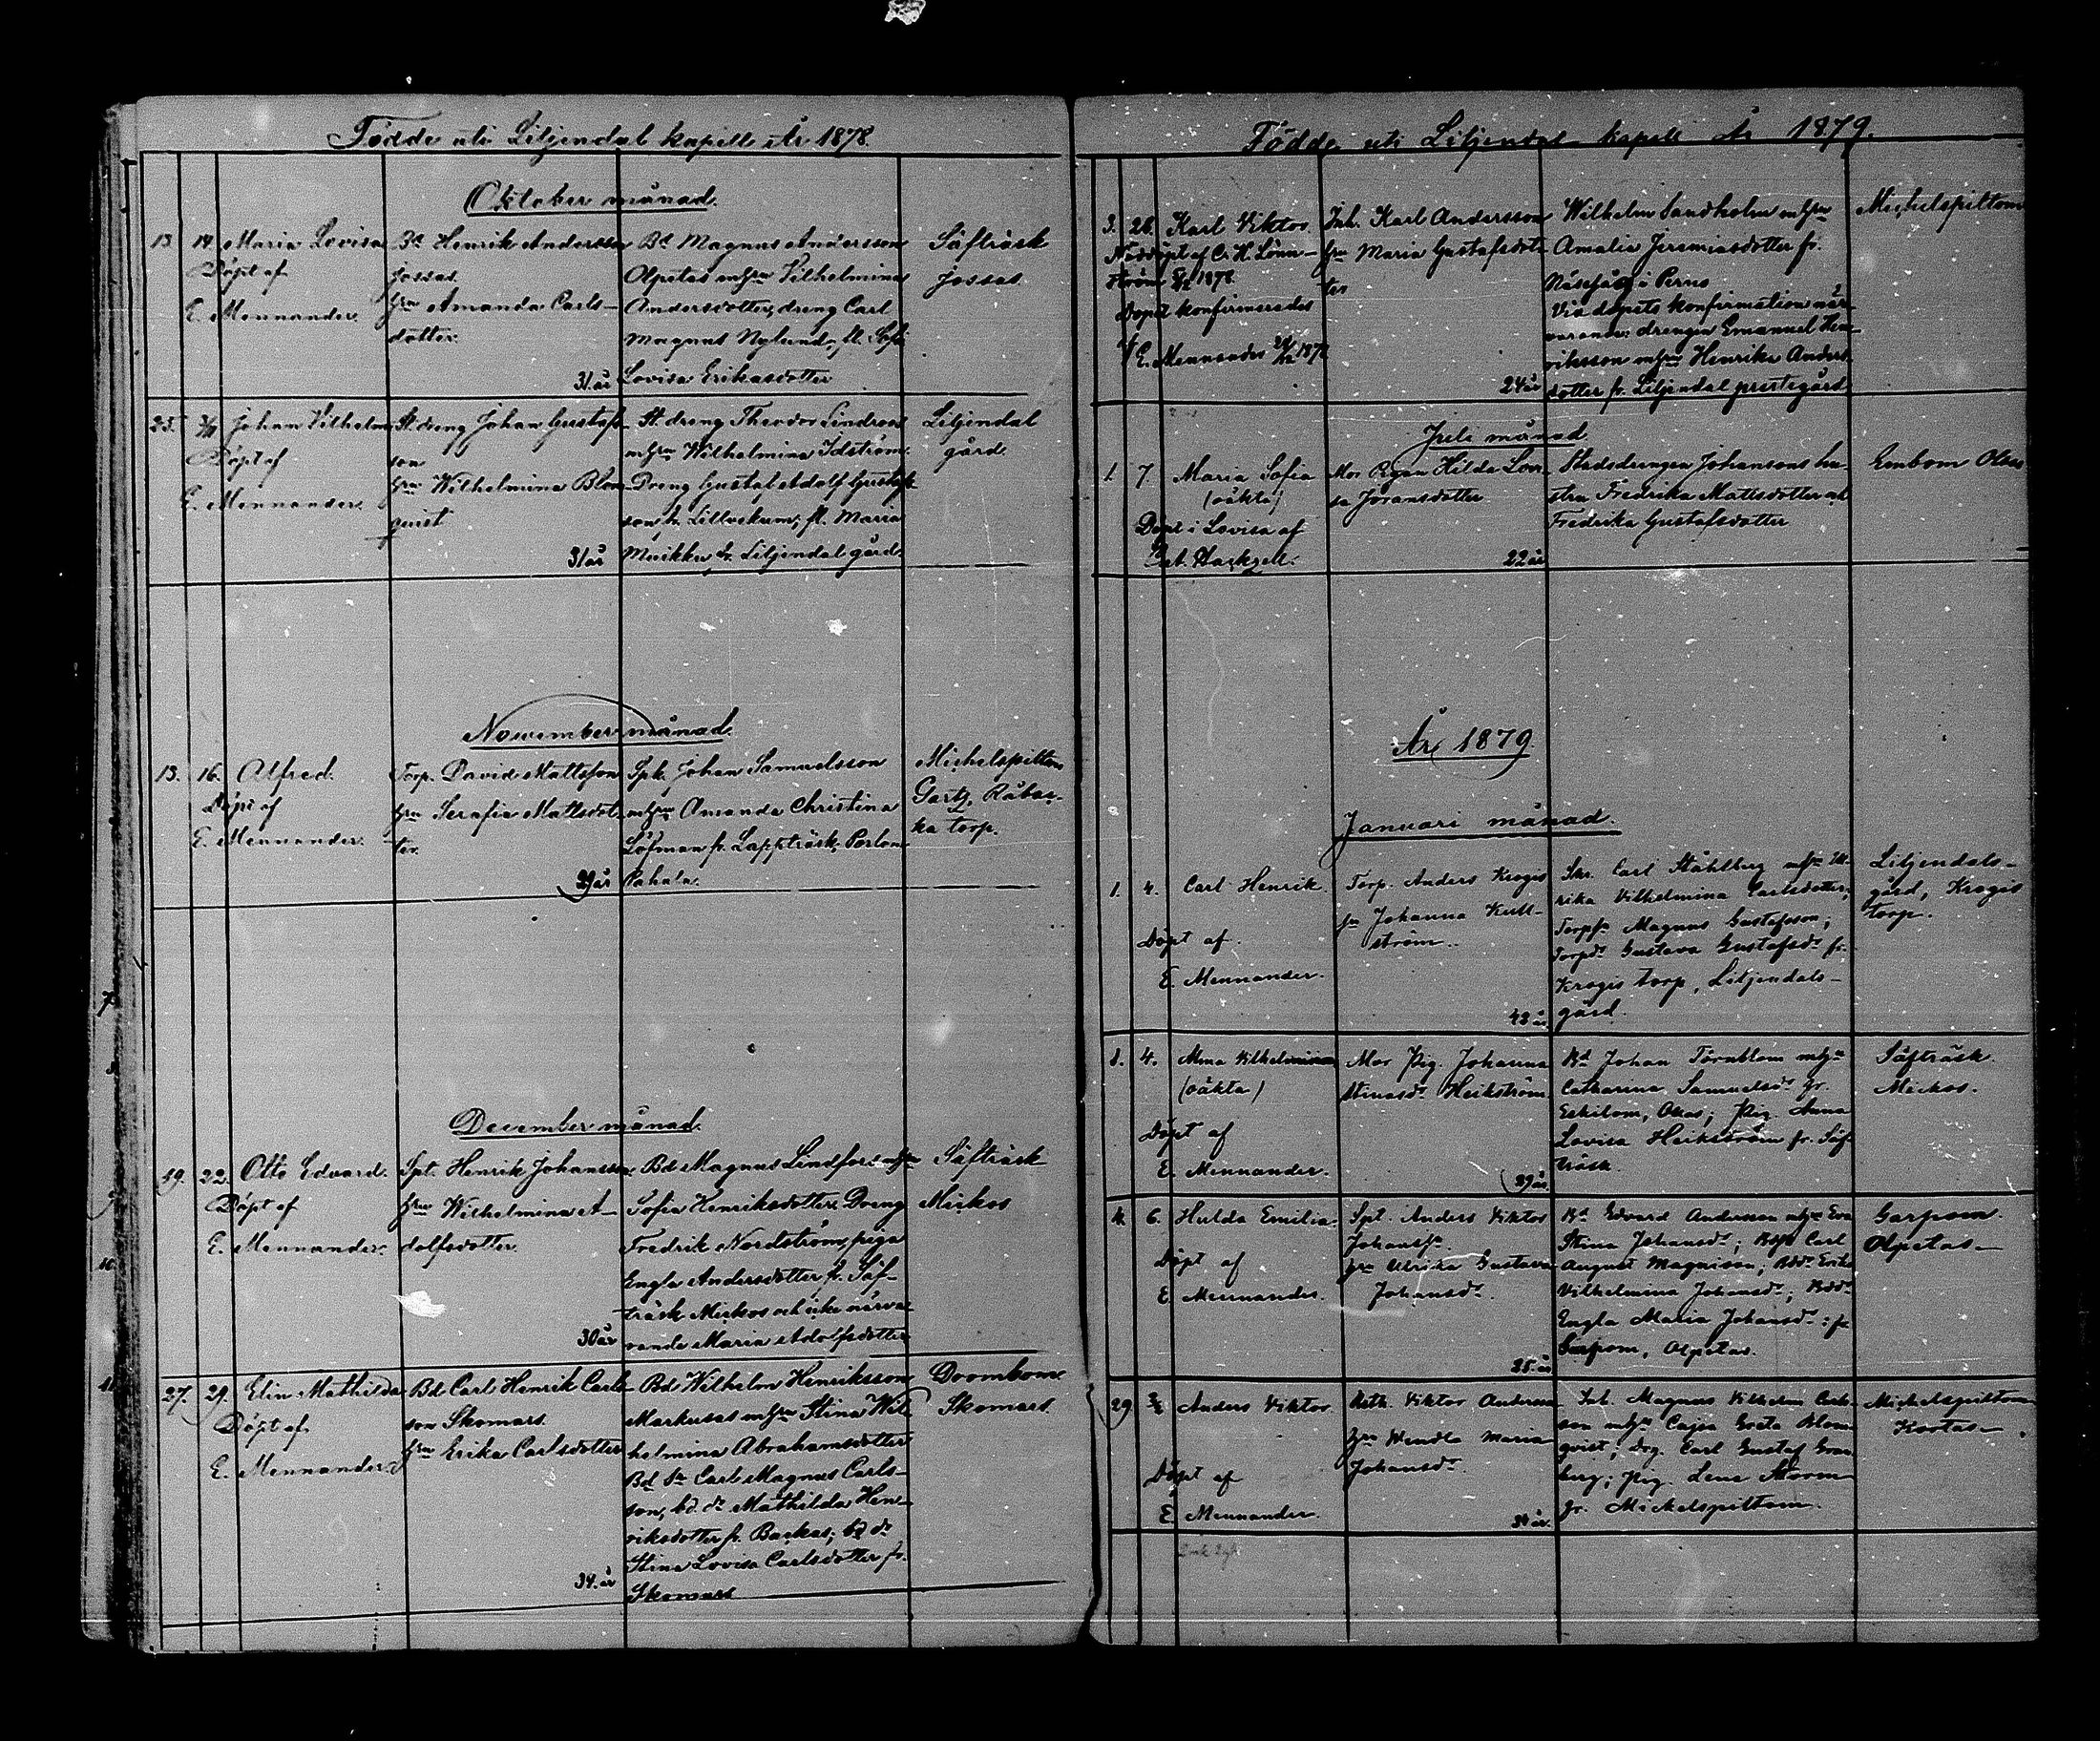 Födde uti Liljendal kapell År 1878.
Oktober månad.
13 14 Maria Lovisa
Döpt af
E. Mennander.
Bd Henrik Andersson
Jossas.
hru Amanda Carls-
dotter.
31 år
Bd Magnus Andersson
Olpetas m hru Vilhelmina
Andersdotter; dreng Carl
Magnus Nylund, fl. Sofi
Lovisa Eriksdotter
Säfträsk
Jossas.
25. Johan Vilhelm
Döpt af
E. Mennander.
St. dreng Johan Gustafs-
son
hru Wilhelmina Blom-
quist
31 år
St. dreng Theodor Lindroos
m hru Wilhelmina Idström.
Dreng Gustaf Adolf Gustafs-
son fr. Lillvekum; fl. Maria
Muikku fr. Liljendal gård.
Liljendal
gård.
November månad.
13. 16. Alfred.
Döpt af
E. Mennander.
Torp. David Mattsson
hru Serafia Mattsdot-
ter.
29 år
Spk. Johan Samuelsson
m hru Amanda Christina
Löfman fr. Lappträsk, Porlom
Pahala.
Michelspiltom
Garts, Råbac-
ka torp.
December månad.
19. 22. Otto Edvard.
Döpt af
E. Mennander.
Spt. Henrik Johansson
hru Wilhelmina A-
dolfsdotter.
30 år
Bd Magnus Lindfors m hru
Sofia Henriksdotter. Dreng
Fredrik Nordström, piga
Engla Andersdotter fr. Säf-
träsk Mickos och icke närva-
rande Maria Adolfsdotter
Säfträsk
Mickos
27. 29. Elin Mathilda
Döpt af
E. Mennander
Bd Carl Henrik Carls-
son Skomars.
hru Erika Carlsdotter
34. år
Bd Wilhelm Henriksson
Markusas m hru Stina Wil-
helmina Abrahamsdotter
Bd Sn Carl Magnus Carls-
son, bd. dr Mathilda Hen-
riksdotter fr. Backas; bd dr
Stina Lovisa Carlsdotter fr.
Skomars
Drombom
Skomars.
Födde uti Liljendal kapell År 1879.
3. 26. Karl Viktor
Nöddöpt af C. H. Lönn-
ström 1878.
Dopet konfirmerades
af E. Mennander 26/12 1878
Inh. Karl Andersson
hru Maria Gustafsdot-
ter
24 år
Wilhelm Sandholm m hru
Amalia Jeremiasdotter fr.
Näsefärs i Perno
Vid dopets konfirmation när-
varande: drengen Emanuel Hen-
riksson m hru Henrika Anders-
dotter fr. Liljendal prestegård
Michelspiltom
Juli månad
1. 7. Maria Sofia
(oäkta)
Döpt i Lovisa af
Hackzell.
Mor Pigan Hilda Lovi-
sa Jöransdotter
22 år
Stadsdrengen Johansons hu-
stru Fredrika Mattsdotter och
Fredrika Gustafsdotter
Embom Olas
År 1879.
Januari månad.
1. 4. Carl Henrik.
Döpt af.
E. Mennander.
Torp. Anders Krogis
hru Johanna Kull-
ström.
42 år.
Skr. Carl Ståhlberg m hru Ul-
rika Vilhelmina Carlsdotter;
Torpsn Magnus Gustafsson;
Torpdr Gustava Gustafsdr fr.
Krogis torp, Liljendals-
gård.
Liljendals-
gård, Krogis
torp.
1. 4. Alma Vilhelmina
(oäkta)
Döpt af
E. Mennander.
Mor Pig. Johanna
Stinasdr Heikström
29 år.
Bd Johan Törnblom m hru
Catharina Samuelsdr fr.
Eskilom, Olas; Pig. Anna
Lovisa Heikström fr. Säf-
träsk.
Säfträsk
Mickos.
4. 6. Hulda Emilia.
Döpt af
E. Mennander.
Spt. Anders Viktor
Johanss.
hru Ulrika Gustava
Johansdr.
25. år
Bd Edvard Andersson m hru Eva
Stina Johansdr; Bdsn Carl
August Magnison; Bddr Erika
Vilhelmina Johansdr; Bddr
Engla Maria Johansdr: fr
Garpom, Olpetas.
Garpom.
Olpetas-
29 2/2 Anders Viktor.
Döpt af
E. Mennander.
Viktor Andersson
hru Wendla Maria
Johansdr.
34 år.
Inh. Magnus Vilhelm Carls-
son m hru Cajsa Greta Blom-
qvist; Drg. Carl Gustaf Gran-
berg; Pig. Lena Storm
fr. Michelspiltom.
Michelspiltom
Kortas-